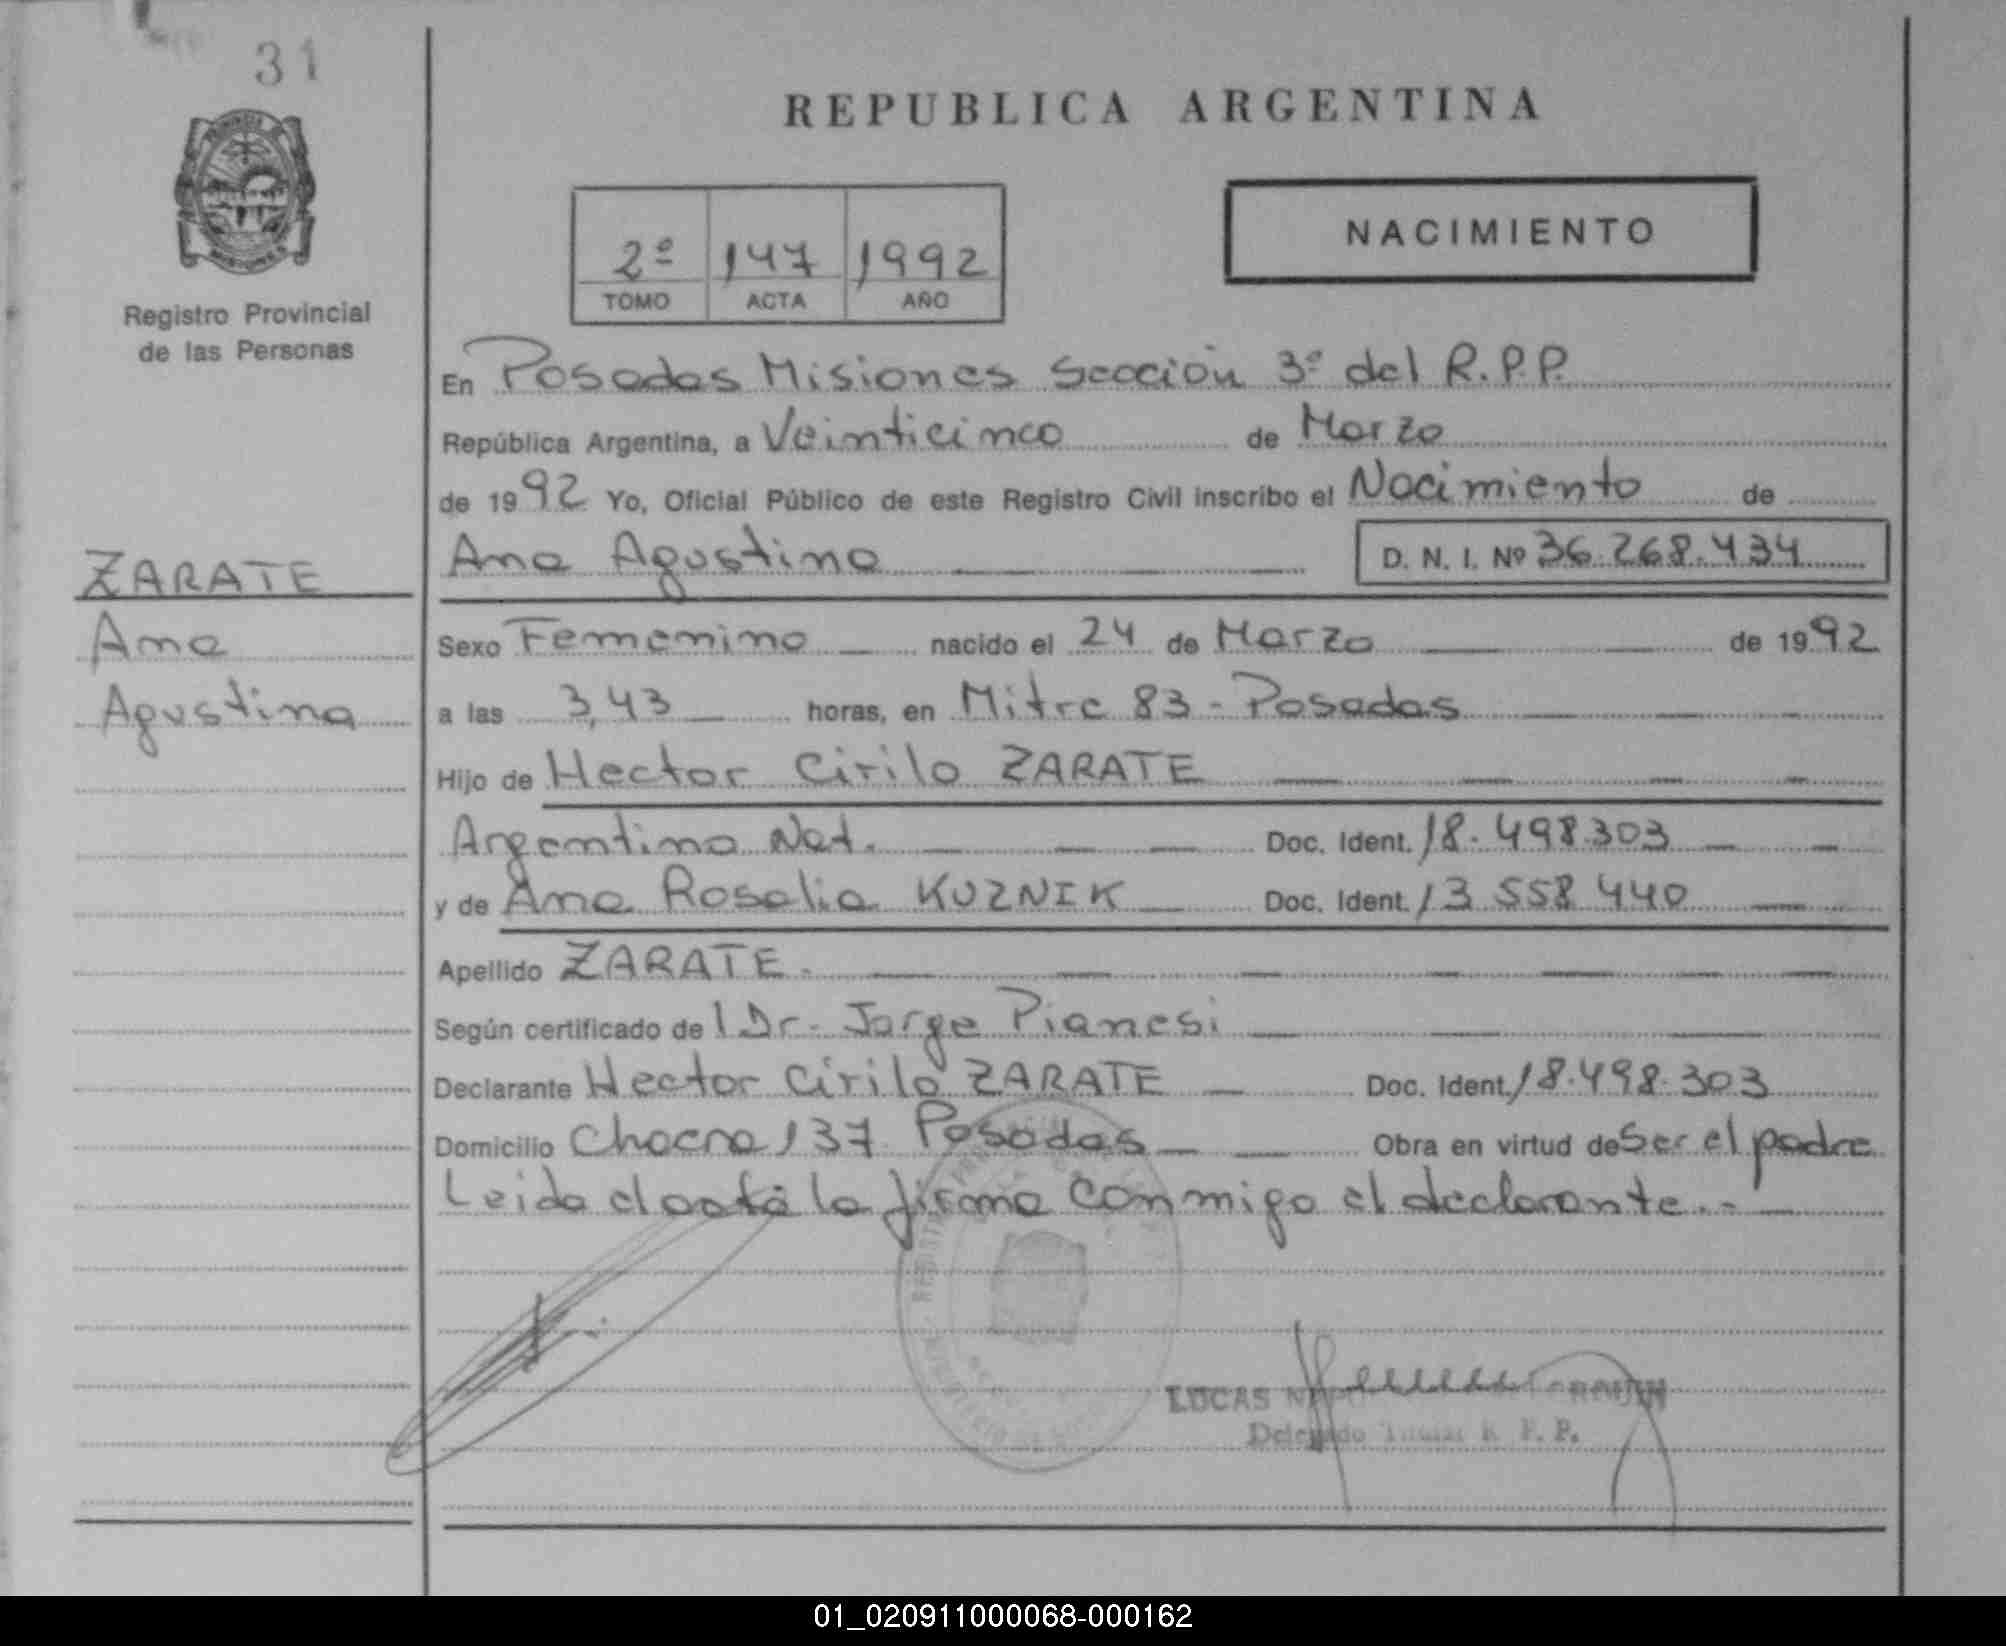 31
REPUBLICA ARGENTINA
NACIMIENTO
2º 147 1992
TOMO ACTA AÑO
Registro Provincial
de las Personas
En Posadas Misiones Sección 3º del R.P.P.
República Argentina, a Veinticinco de Marzo
de 1992 Yo, Oficial Público de este Registro Civil inscribo el Nacimiento de
Ana Agustina D. N. I. Nº 36.268.434
ZARATE
Ana
Agustina
Sexo Femenino nacido el 24 de Marzo de 1992
a las 3,43 horas, en Mitre 83 - Posadas
Hijo de Hector Cirilo ZARATE
Argentina Nat. Doc. Ident. 18.498.303
y de Ana Rosalia KUZNIK Doc. Ident. 13 558 440
Apellido ZARATE.
Según certificado de l Dr. Jorge Pianesi
Declarante Hector Cirilo ZARATE Doc. Ident. 18.498.303
Domicilio Chacra 137 Posadas Obra en virtud de Ser el padre
Leida el acta la firma conmigo el declarante.-
LUCAS
Delegado Titular R. P. P.
01_020911000068-000162